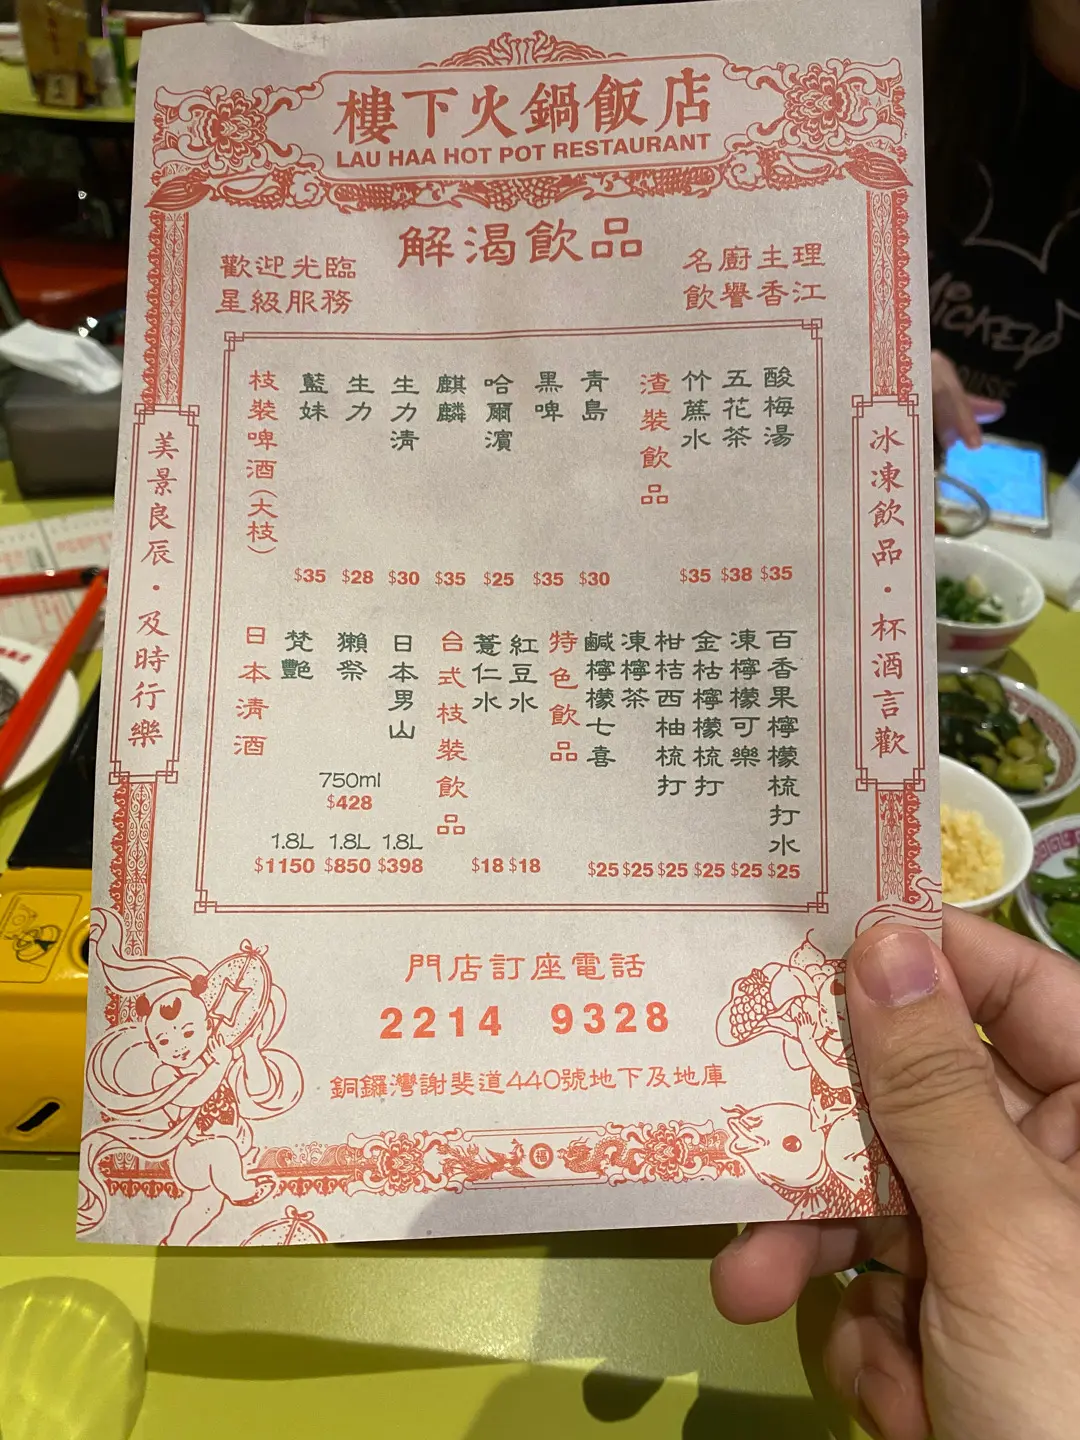 樓下火鍋飯店
LAU HAA HOT POT RESTAURANT
解渴飲品
名廚主理
飲譽香江
歡迎光臨
星級服務
冰凍飲品·杯酒言歡
美景良辰·及時行樂
酸梅湯 $35
五花茶 $38
竹蔗水 $35
渣裝飲品
青島 $30
黑啤 $35
哈爾濱 $25
麒麟 $35
生力清 $30
生力 $28
藍妹 $35
枝裝啤酒(大枝)
百香果檸檬梳打水 $25
凍檸檬可樂 $25
金桔檸檬梳打 $25
柑桔西柚梳打 $25
凍檸茶 $25
鹹檸檬七喜 $25
特色飲品
紅豆水 $18
薏仁水 $18
台式枝裝飲品
日本男山 1.8L $398
獺祭 750ml $428 1.8L $850
梵艷 1.8L $1150
日本清酒
門店訂座電話
2214 9328
銅鑼灣謝斐道440號地下及地庫
福
MICKEY